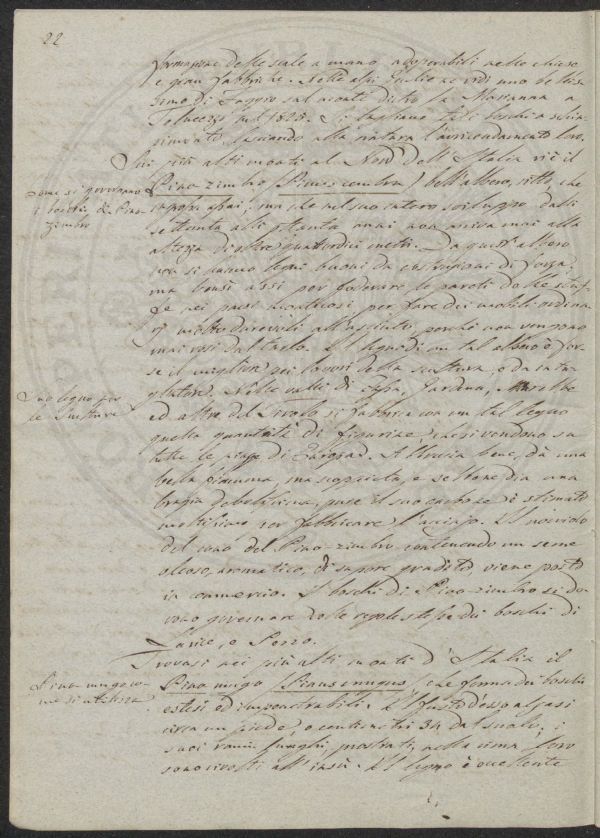 22
formazione delle scale a mano adoperabili nelle chiese
e gran fabbriche. Nelle alpi Giulie ne vidi uno bellis-
simo di Faggio sul monte dietro la Marianna a
nel 1825. Si tagliano tali boschi a schia-
rimento lasciando alla natura l'avvicendamento loro.
Sui più alti monti al Nord dell'Italia v'è il
Come si governano
i boschi di Pino
zimbro
Pino zimbro (Pinus cembra) bell'albero, sitto, che
assai, ma che nel suo intero sviluppo dalli
settanta alli ottanta anni non arriva mai alla
altezza di oltre quattordici metri. Da quest'albero
non si hanno legni buoni da costruzioni di forza,
ma bensì assi per foderare le pareti delle stuf-
fe nei paesi montuosi per fare dei mobili ordina-
rj molto durevoli all'asciuto, perchè non vengono
mai rosi dal tarlo. Il legno di un tal albero è for-
se il migliore pei lavori della scultura, o da inta-
gliatore. Nelle valli di Gardena,
Suo legno per
le Sculture
ed altre del Tirolo si fabbrica con un tal legno
quella quantità di figurine che si vendono su
tutte le piazze di Europa. Abbrucia bene, dà una
bella fiamma, ma scoppietta, e sebbene dia una
bragia debolissima, pure il suo carbone è stimato
moltissimo per fabbricare l'acciajo. Il nocciolo
del cono del Pino-zimbro, contenendo un seme
oleoso, aromatico, di sapore gradito viene posto
in commercio. I boschi di Pino-zimbro si do-
vono governare colle regole stesse dei boschi di
Larice, o Pezzo.
Trovasi nei più alti monti d'Italia il
Pino mugo co-
me si utilizza
Pino mugo (Pinus mugus) che forma dei boschi
estesi ed impenetrabili. Il fusto d'esso alzasi
circa un piede, o centimetri 34 dal suolo; i
suoi rami lunghi, prostrati, nella cima loro
sono rivolti all'insù. Il legno è eccellente